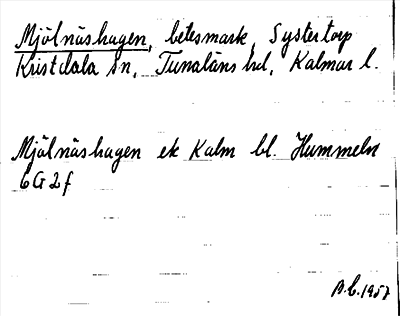 Mjölnäshagen, betesmark, Systertorp
Kristdala sn, Tunaläns hd, Kalmar l.
Mjölnäshagen ek Kalm bl. Hummeln
6G2f
B.C. 1957